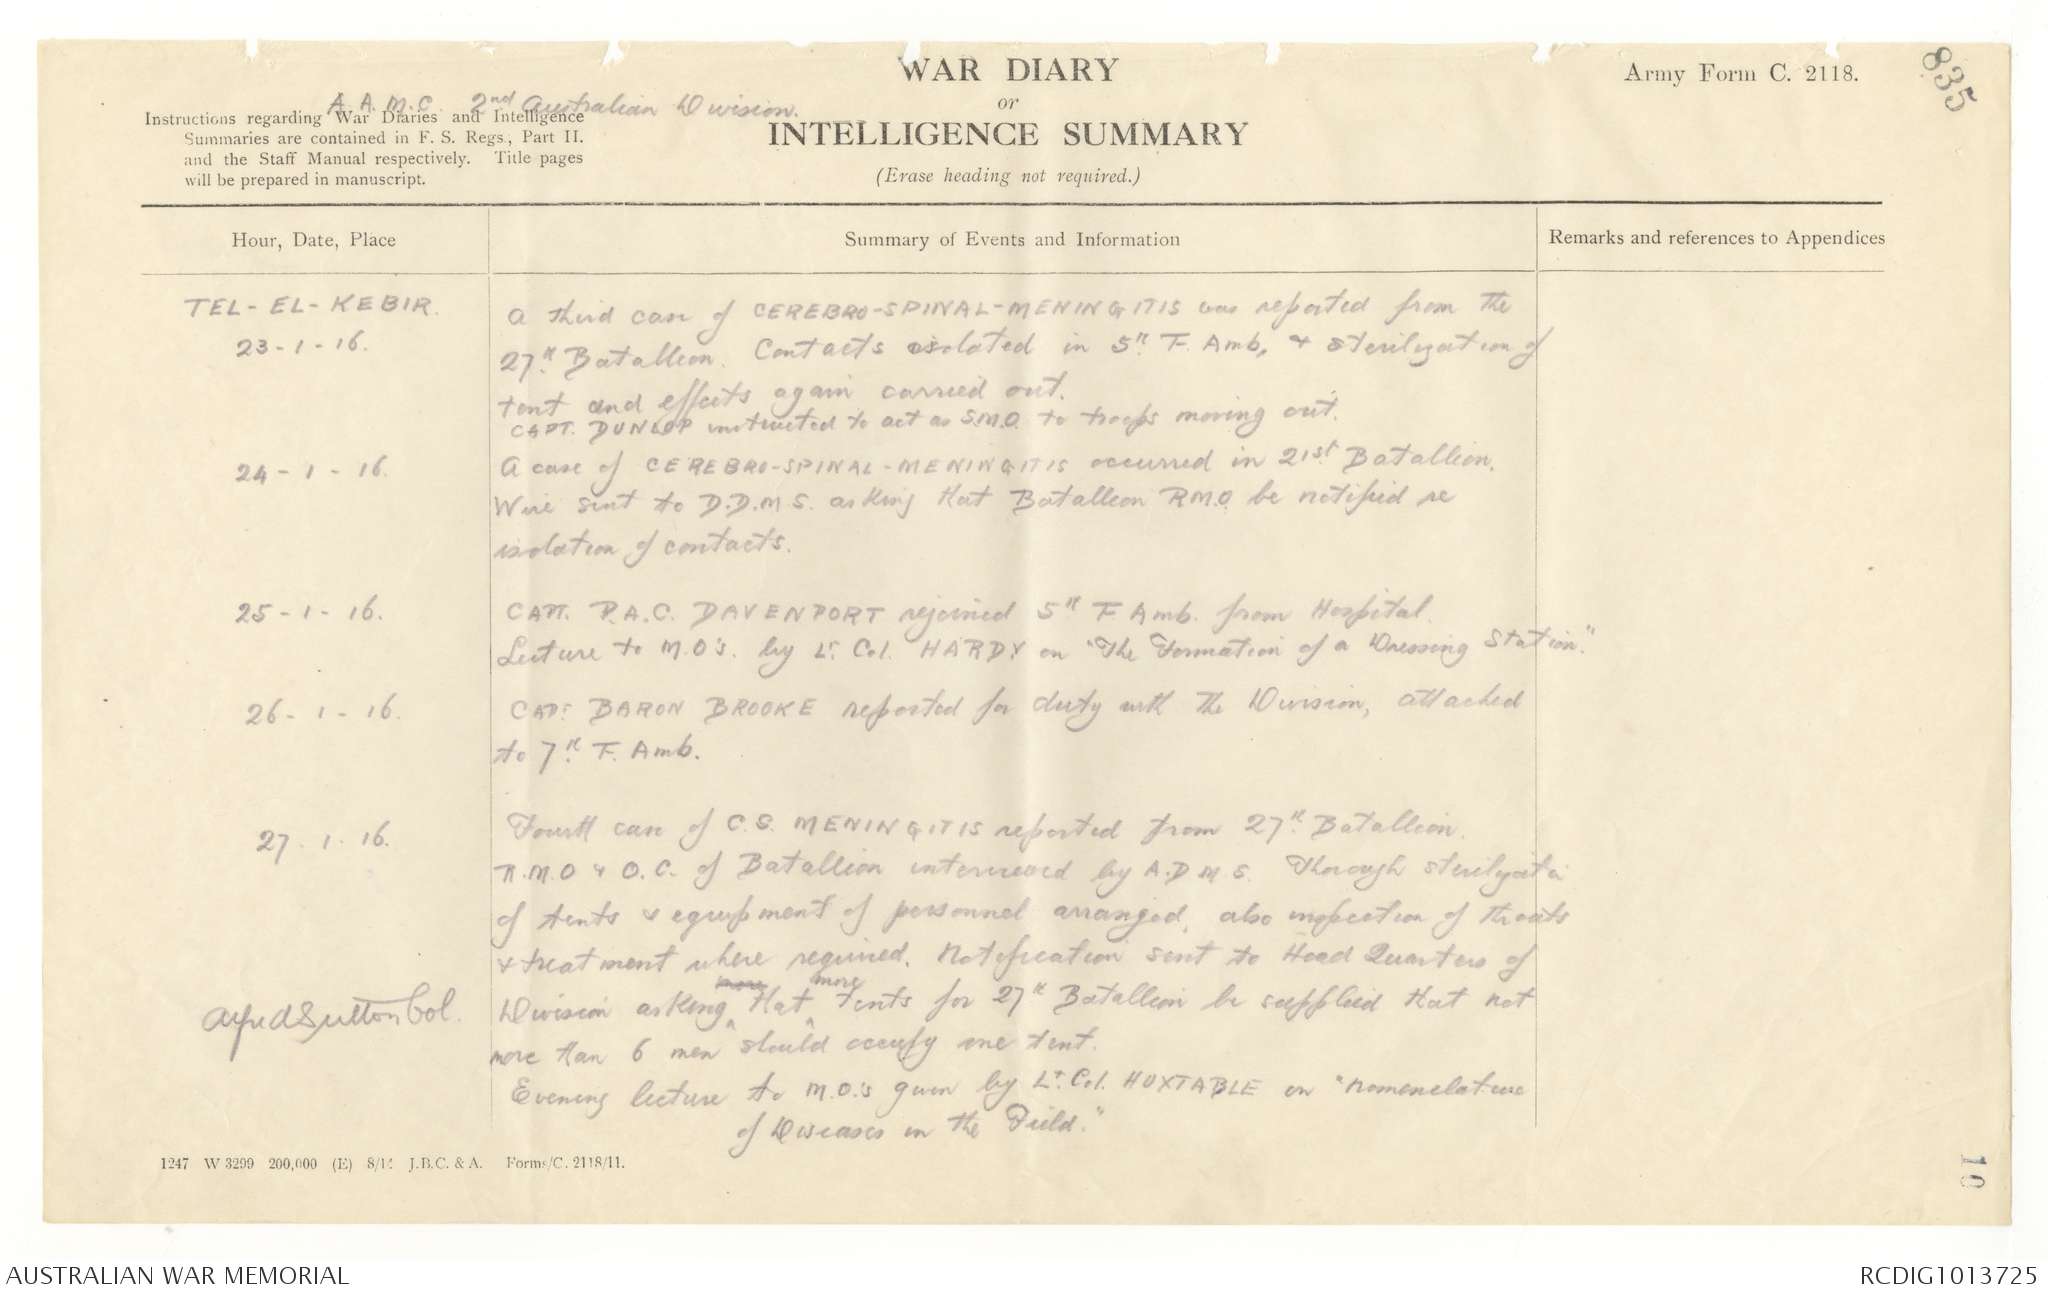 WAR DIARY
or
INTELLIGENCE SUMMARY
(Erase heading not required.)
Army Form C. 2118.
835
A.A.M.C. 2nd Australian Division.
Instructions regarding War Diaries and Intelligence
Summaries are contained in F. S. Regs., Part II.
and the Staff Manual respectively. Title pages
will be prepared in manuscript.
Hour, Date, Place
Summary of Events and Information
Remarks and references to Appendices
TEL-EL-KEBIR.
23-1-16.
A third case of CEREBRO-SPINAL-MENINGITIS was reported from the
27th Batallion. Contacts isolated in 5th F. Amb, & sterilization of
tent and effects again carried out.
CAPT. DUNLOP instructed to act as S.M.O. to troops moving out.
24-1-16.
A case of CEREBRO-SPINAL-MENINGITIS occurred in 21st Batallion.
Wire sent to D.D.M.S. asking that Batallion R.M.O be notified re
isolation of contacts.
25-1-16.
CAPT. P.A.C. DAVENPORT rejoined 5th F. Amb. from Hospital.
Lecture to M.O's. by Lt. Col. HARDY on "The Formation of a Dressing Station."
26-1-16.
CAPT BARON BROOKE reported for duty with the Division, attached
to 7th F. Amb.
27.1.16.
Fourth case of C.S. MENINGITIS reported from 27th Batallion.
R.M.O & O.C. of Batallion interviewed by A.D.M.S. Thorough sterilyzatio
of tents & equipment of personnel arranged, also inspection of throats
& treatment where required. Notification sent to Head Quarters of
Division asking more that more tents for 27th Batallion be supplied that not
more than 6 men should occupy one tent.
Evening lecture to M.O.'s given by Lt. Col. HUXTABLE on "Nomenclature
of Diseases in the Field."
Alfred Sutton Col.
1247 W 3299 200,000 (E) 8/14 J.B.C. & A. Forms/C. 2118/11.
10
AUSTRALIAN WAR MEMORIAL
RCDIG1013725